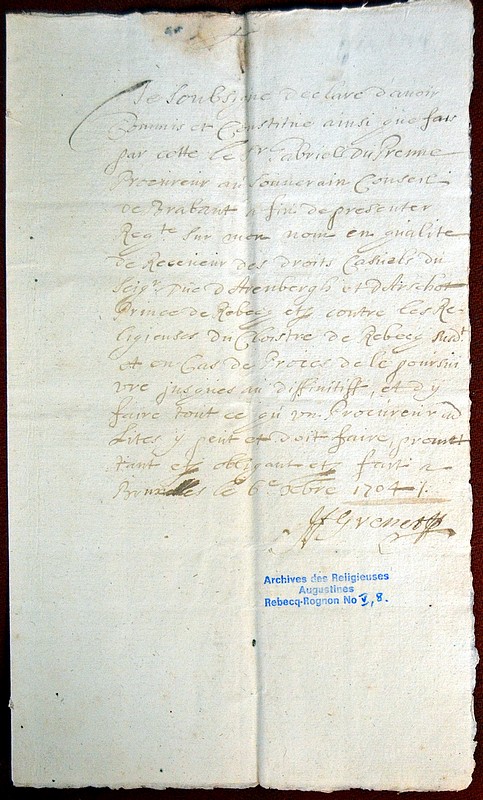 Je Soubsigné declare d'avoir
Commis et Constitué ainsi que fais
par cette le Sr. Gabriel Du Prenne
Procureur au Souverain Conseil
de Brabant a fin de presenter
Reqte sur mon nom en qualité
de Receveur des droits Casuels du
Seigr Duc d'Arenbergh et D'Arschot
Prince de Rebecq etc contre les Re-
ligieuses du Cloistre de Rebecq susdt
et en Cas de Proces de le poursui
vre jusques au diffinitiff, et d'y
faire tout ce qu'un Procureur ad
Lites y peut et doit faire, promet
tant etc obligant etc fait a
Bruxelles le 6e xbre 1704 /.
Grenet
Archives des Religieuses
Augustines
Rebecq-Rognon No V, 8.